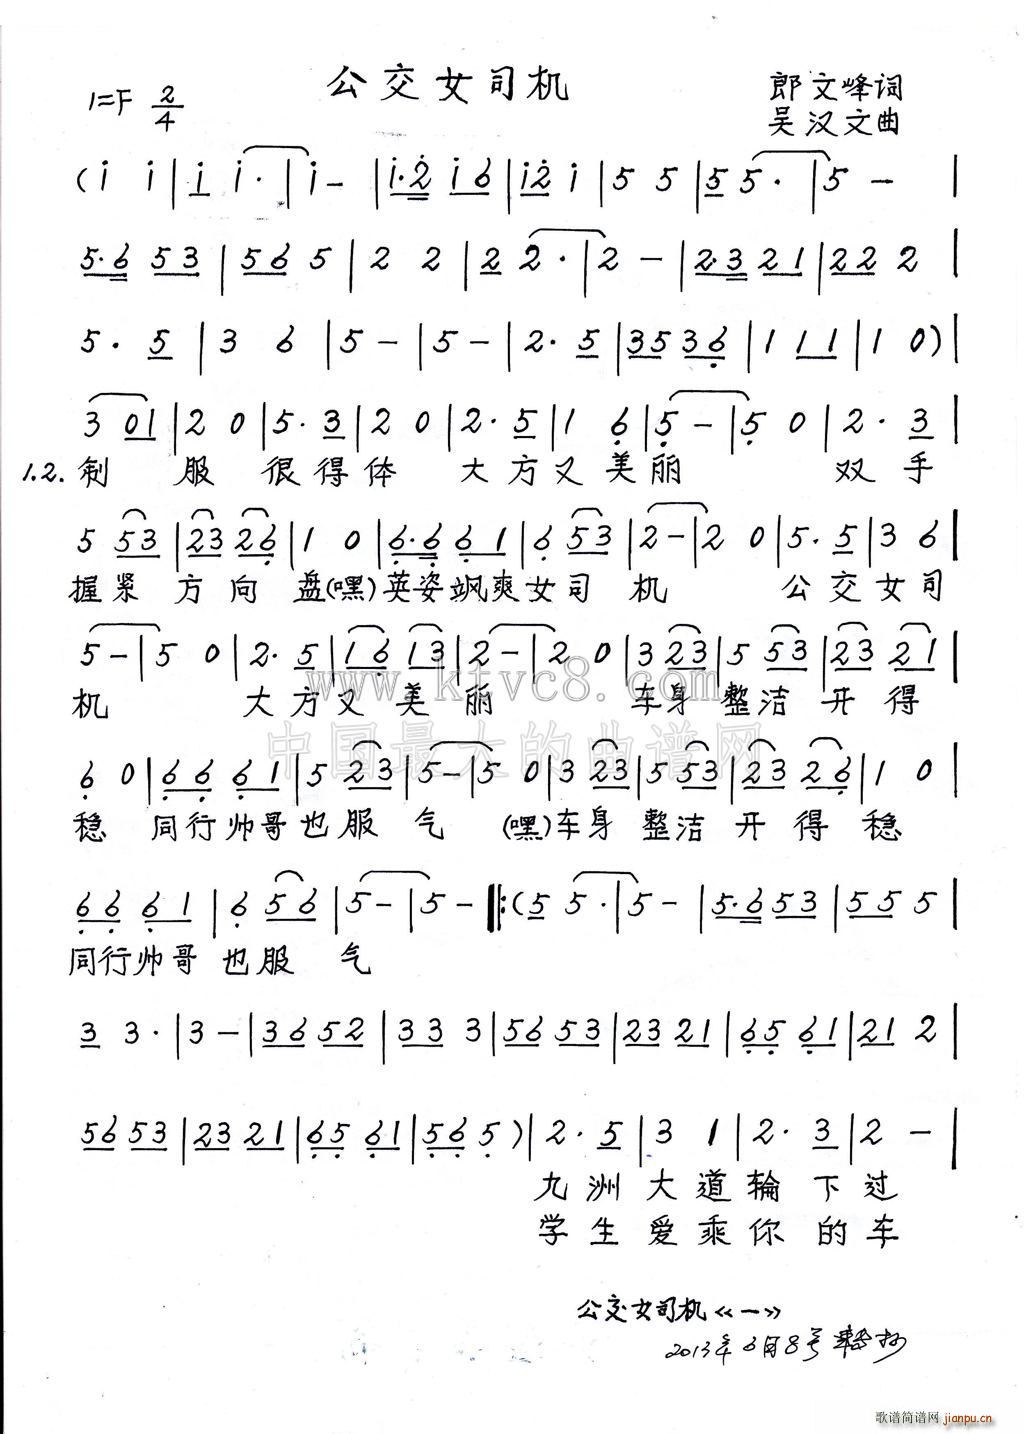 公交女司机
1=F 2/4
郎文峰词
吴汉文曲
(i i | i i· | i - | i·2 i6 | i2 i | 5 5 | 5 5· | 5 - |
5·6 53 | 56 5 | 2 2 | 2 2· | 2 - | 2·3 21 | 22 2 |
5· 5 | 3 6 | 5 - | 5 - | 2· 5 | 35 36 | 1 11 | 1 0) |
3 01 | 2 0 | 5· 3 | 2 0 | 2· 5 | 1 6 | 5 - | 5 0 | 2· 3 |
1.2. 制 服 很得体 大方又美丽 双手
5 53 | 23 26 | 1 0 | 6·6 61 | 6 53 | 2 - | 2 0 | 5· 5 | 3 6 |
握紧 方向 盘(嘿)英姿飒爽女司 机 公交女司
5 - | 5 0 | 2· 5 | 16 13 | 2 - | 2 0 | 3 23 | 5 53 | 23 21 |
机 大方又美丽 车身整洁开得
www.ktvc8.com
中国最大的曲谱网
6 0 | 66 61 | 5 23 | 5 - | 5 0 | 3 23 | 5 53 | 23 26 | 1 0
稳 同行帅哥也服气 (嘿)车身整洁开得稳
66 61 | 6 56 | 5 - | 5 - ‖: (5 5· | 5 - | 5·6 53 | 55 5 |
同行帅哥也服气
3 3· | 3 - | 36 52 | 33 3 | 56 53 | 23 21 | 65 61 | 21 2 |
56 53 | 23 21 | 65 61 | 56 5) | 2· 5 | 3 1 | 2· 3 | 2 - |
九洲大道轮下过
学生爱乘你的车
公交女司机《一》
2013年6月8号
歌谱简谱网 jianpu.cn